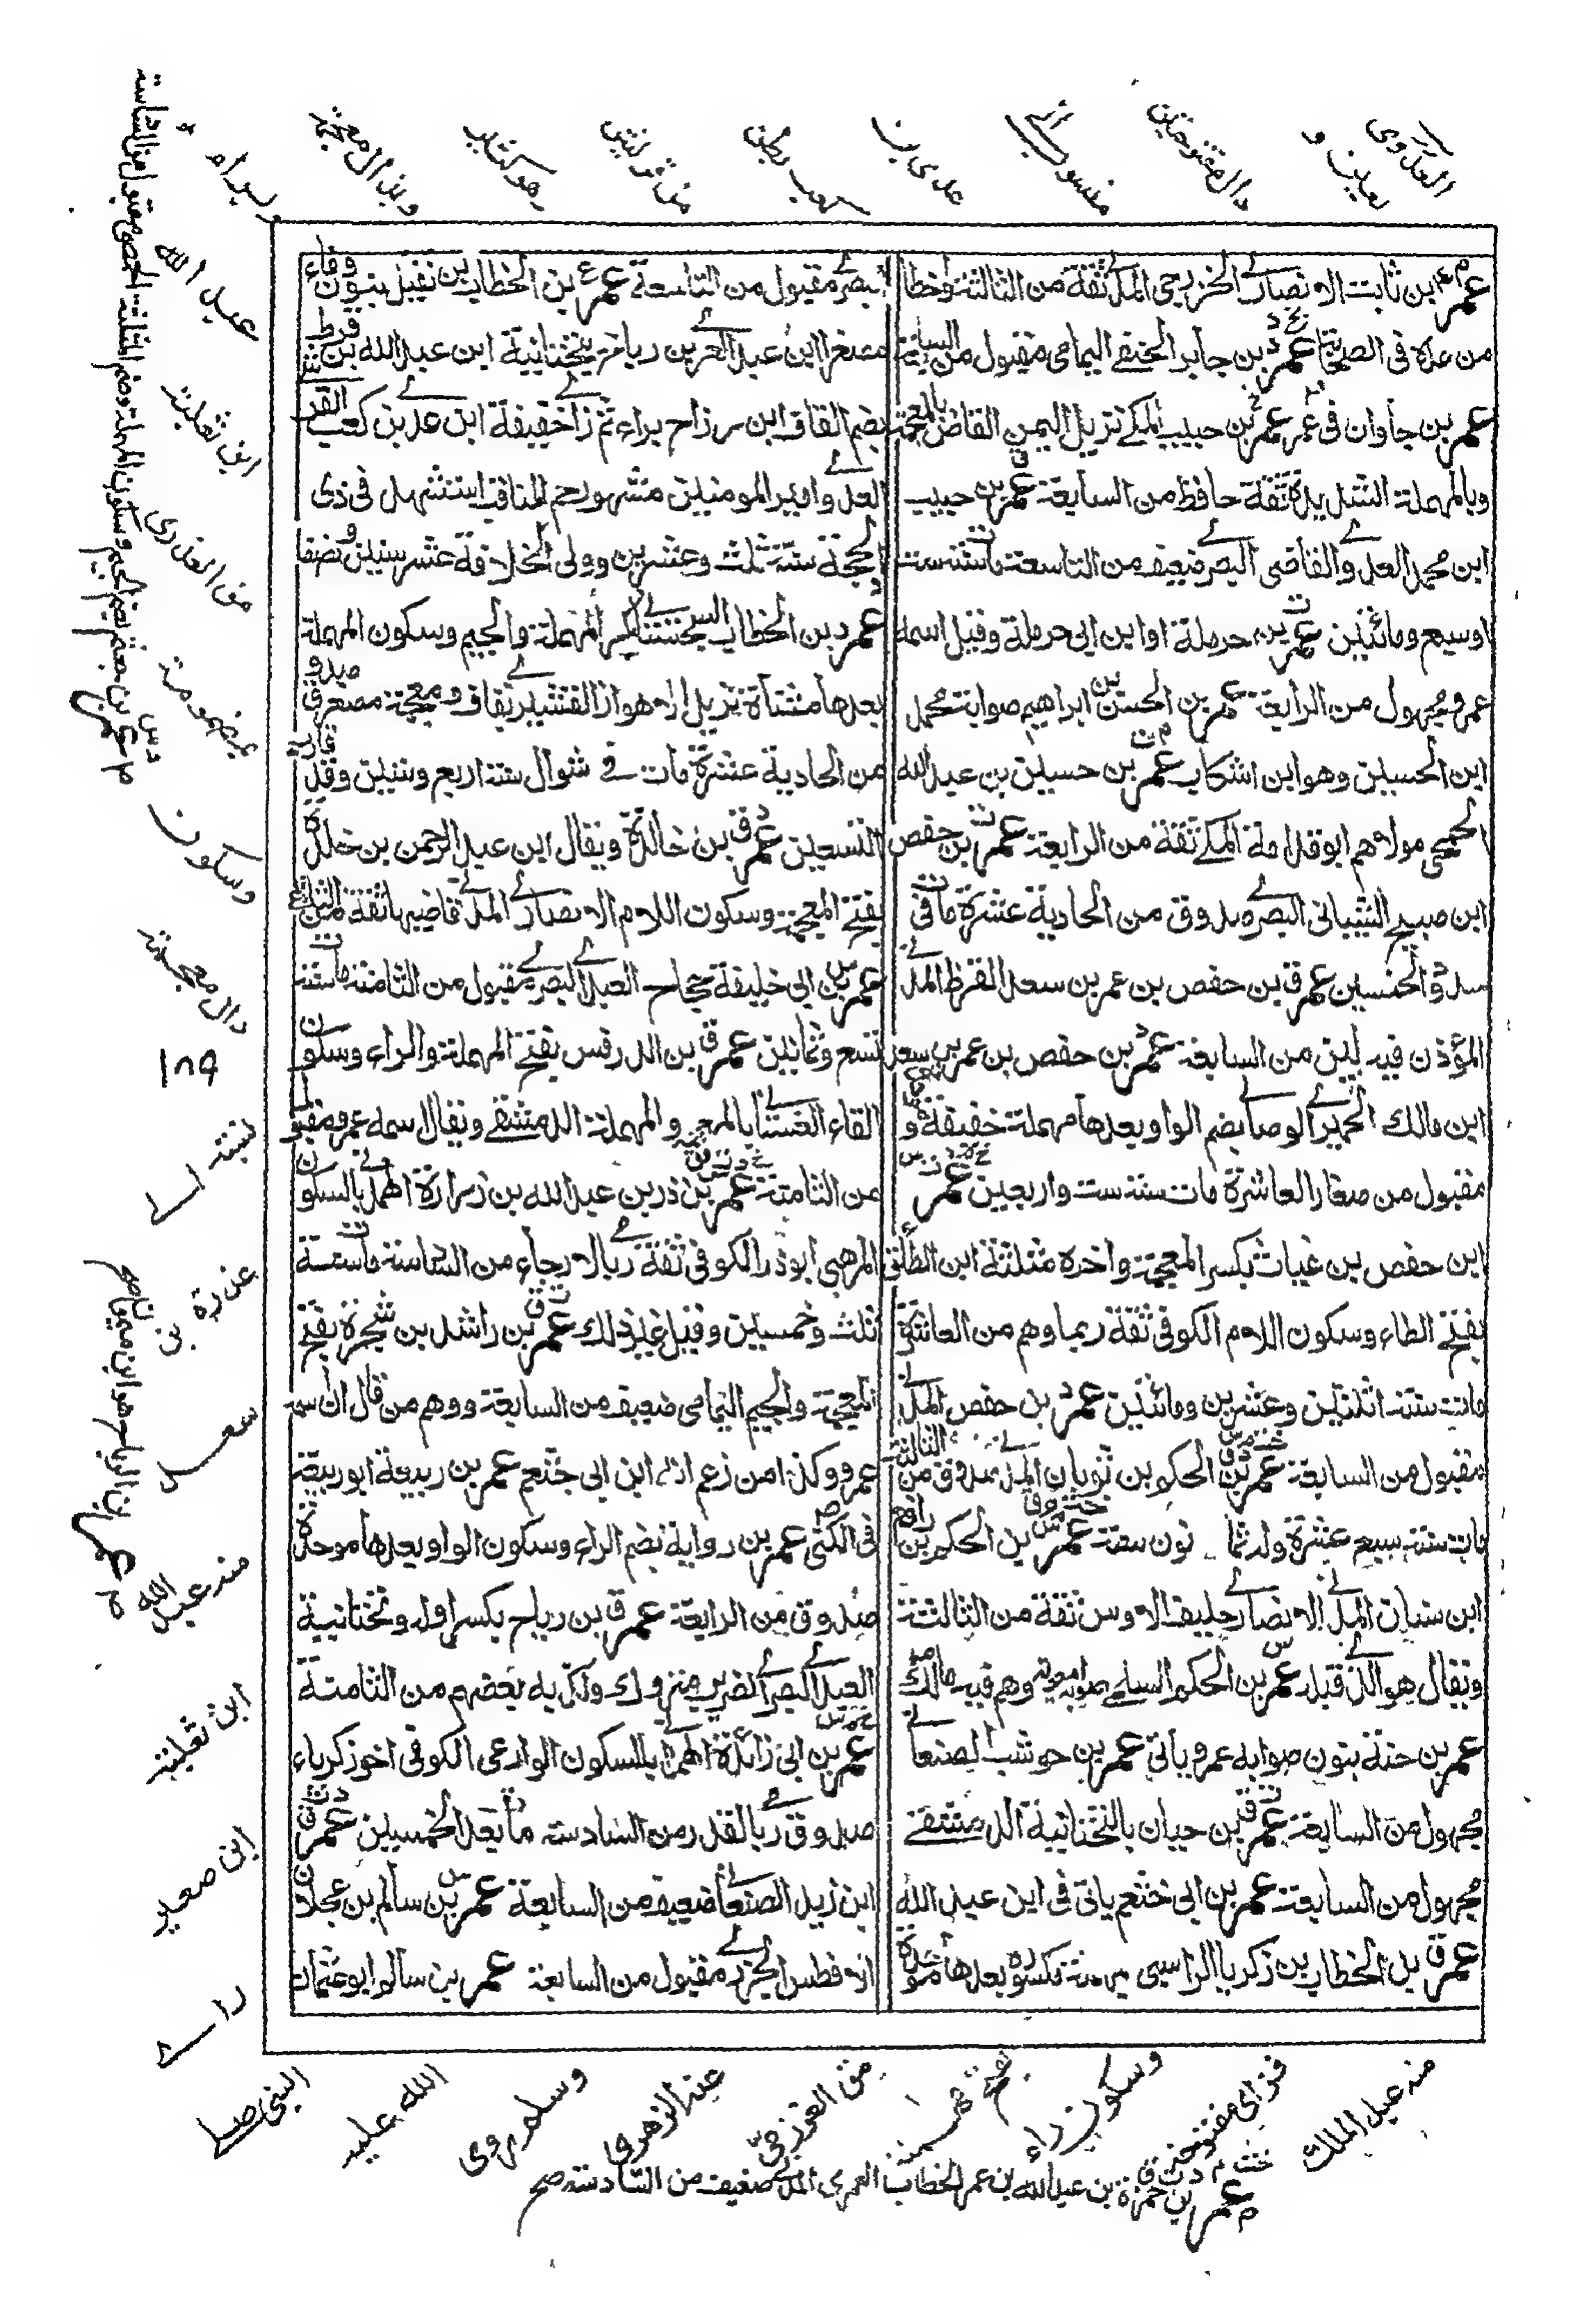 عمر بن ثابت الانصاري الخزرجي المدني ثقة من الثالثة واخطا
من عده في الصحابة عمر بن جابر الحنفي اليمامي مقبول من السابعة
عمر بن جاوان في عمرو عمر بن حبيب المكي نزيل اليمن القاض بالمعجمة
وبالمهملة الشديدة ثقة حافظ من السابعة عمر بن حبيب
ابن محمد العدوي القاضي البصري ضعيف من التاسعة مات سنة ست
او سبع ومائتين عمر بن حرملة او ابن ابي حرملة وقيل اسمه
عمرو مجهول من الرابعة عمر بن الحسن بن ابراهيم صوابه محمد
ابن الحسين وهو ابن اشكاب عمر بن حسين بن عبد الله
الجمحي مولاهم ابو قدامة المكي ثقة من الرابعة عمر بن حفص
ابن صبيح الشيباني البصري صدوق من الحادية عشرة مات في
حدود الخمسين عمر بن حفص بن عمر بن سعد القرظ المدني
المؤذن فيه لين من السابعة عمر بن حفص بن عمر بن سعد
ابن مالك الحميري الوصابي بضم الواو بعدها مهملة خفيفة
مقبول من صغار العاشرة مات سنة ست واربعين عمر
ابن حفص بن غياث بكسر المعجمة واخره مثلثة ابن الطلق
بفتح الطاء وسكون اللام الكوفي ثقة ربما وهم من العاشرة
مات سنة اثنتين وعشرين ومائتين عمر بن حفص المدني
مقبول من السابعة عمر بن الحكم بن ثوبان المدني صدوق من الثالثة
مات سنة سبع عشرة وله ثمانون سنة عمر بن الحكم بن رافع
ابن سنان المدني الانصاري حليف الاوس ثقة من الثالثة
ويقال هو الذي قبله عمر بن الحكم السلمي صوابه معوية وهم فيه مالك
عمر بن حنة بنون صوابه عمرو ياتي عمر بن حوشب الصنعاني
مجهول من السابعة عمر بن حيان بالتحتانية الدمشقي
مجهول من السابعة عمر بن ابي خثعم ياتي في ابن عبد الله
عمر بن الخطاب بن زكريا الراسبي بمهملة مكسورة بعدها موحدة
البصري مقبول من التاسعة عمر بن الخطاب بن نفيل بنون وفاء
مصغرا ابن عبد العزى بن رياح بتحتانية ابن عبد الله بن قرط
بضم القاف ابن رزاح براء ثم زا خفيفة ابن عدي بن كعب القرشي
العدوي امير المومنين مشهور جم المناقب استشهد في ذي
الحجة سنة ثلث وعشرين وولي الخلافة عشر سنين ونصفا
عمر بن الخطاب السجستاني بكسر المهملة والجيم وسكون المهملة
بعدها مثناة نزيل الاهواز القشيري بقاف ومعجمة مصغر صدوق
من الحادية عشرة مات في شوال سنة اربع وستين وقد قارب
التسعين عمر بن خالدة ويقال ابن عبد الرحمن بن خلدة
بفتح المعجمة وسكون اللام الانصاري المدني قاضيها ثقة من الثالثة
عمر بن ابي خليفة حجاج العبدي البصري مقبول من الثامنة مات سنة
تسع وثمانين عمر بن الدرفس بفتح المهملة والراء وسكون
الفاء الغساني بالمعجمة والمهملة الدمشقي ويقال اسمه عمرو مقبول
من الثامنة عمر بن ذر بن عبد الله بن زرارة الهمداني بالسكون
المرهبي ابو ذر الكوفي ثقة رمي بالارجاء من السادسة مات سنة
ثلث وخمسين وقيل غير ذلك عمر بن راشد بن شجرة بفتح
المعجمة والجيم اليمامي ضعيف من السابعة ووهم من قال ان اسمه
عمرو وكذا من زعم انه ابن ابي خثعم عمر بن ربيعة ابو ربيعة
في الكنى عمر بن روبة بضم الراء وسكون الواو بعدها موحدة
صدوق من الرابعة عمر بن رياح بكسر اوله وتحتانية
العبدي البصري الضرير متروك وكذبه بعضهم من الثامنة
عمر بن ابي زائدة الهمداني بالسكون الوادعي الكوفي اخو زكرياء
صدوق رمي بالقدر من السادسة مات بعد الخمسين عمر
ابن زيد الصنعاني ضعيف من السابعة عمر بن سالم بن عجلان
الافطس الجزري مقبول من السابعة عمر بن سالم ابو عثمان
العذري
بعين و
دال مفتوحتين
منسوب الى
عدي بن
وهو كتاب
وبذال معجمة
عبد الله
ابن ثعلبة
من العذري
عمضمومة
وسكون
دال معجمة
١٨٩
نسبة الى
عذرة بن
سعد
منه عبد الله
ابن ثعلبة
ابن صعير
راى
النبي صلى
الله عليه
وسلم روى
عنه الزهري
وسكون راء
منه عبد الملك
عمر بن حمزة بن عبد الله بن عمر الخطاب العمري المدني ضعيف من السادسة صح